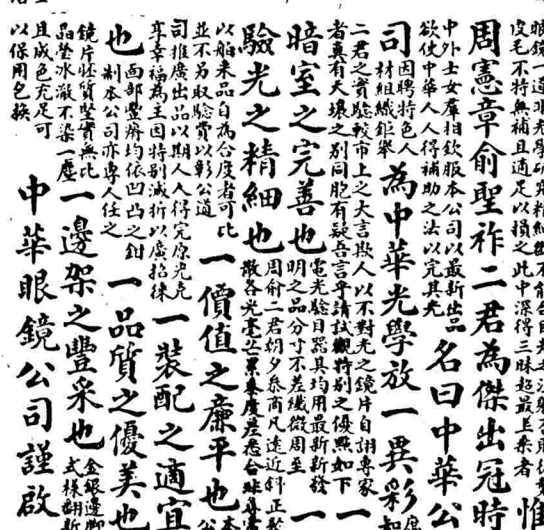 皮毛不特無補且適足以損之此中深得三昧超最上乘者惟
周憲章俞聖祚二君為傑出冠時
中外士女羣相欽服本公司以最新出品
欲使中華人人得補助之法以完其光
名曰中華公
司
因聘特色人
材組織鉅舉
為中華光學放一異彩
二君之實驗較市上之大言欺人以不對光之鏡片自詡專家
者真有天壤之別同胞有疑吾言乎請試觀特別之優點如下
一
暗室之完善也
電光驗目器具均用最新新發
明之品分寸不差纖微周至
一
驗光之精細也
周俞二君朝夕參商凡遠近斜正
散各光毫芒累黍度差悉合
以舶來品自為合度者可比
並不另取驗費以彰公道
一價值之廉平也
司推廣出品以期人人得完原光充
享幸福為主因特別減折以廣招徠
一裝配之適宜
也
面部豐瘠均依凹凸之鉗
制本公司亦專人任之
一品質之優美也
鏡片胚質堅實無比
晶瑩冰澈不染一塵
一邊架之豐采也
金銀邊腳
式樣翻新
且成色充足可
以保用包換
中華眼鏡公司謹啟